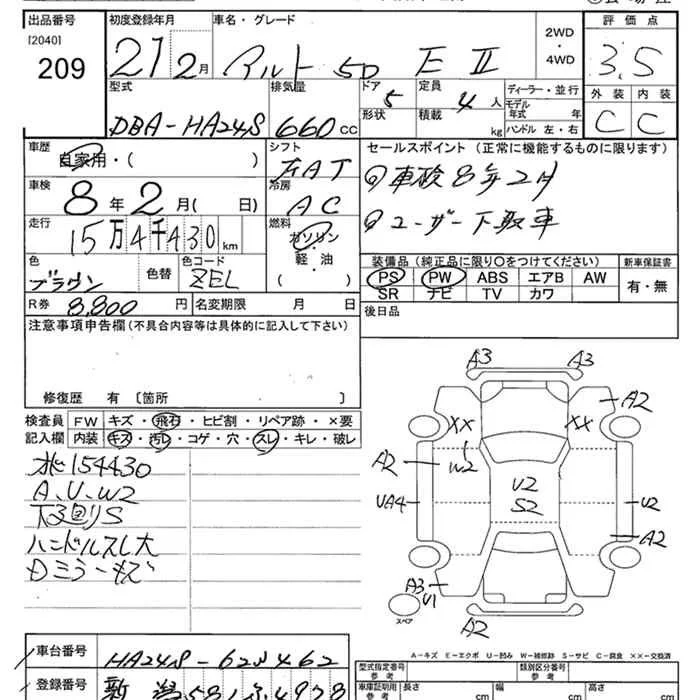 出品番号 初度登録年月 車名・グレード 2WD・4WD 評価点
[2040]
209 21 2月 アルト 5D E II 3.5
型式 排気量 ドア 定員 ディーラー・並行 外装 内装
DBA-HA24S 660cc 5 4人 モデル年式 年 C C
形状 積載 kg ハンドル 左・右
車歴 シフト セールスポイント (正常に機能するものに限ります)
自家用・( ) FAT ①車検8年2月
車検 冷房
8年2月( 日) AC ②ユーザー下取車
走行 燃料
15万4千430km ガソリン・軽・油( )
色 色替 色コード 装備品 (純正品に限り○をつけてください) 新車保証書
ブラウン ZEL PS PW ABS エアB AW 有・無
SR ナビ TV カワ
R券 8,800円 名変期限 月 日 後日品
注意事項申告欄(不具合内容等は具体的に記入して下さい)
修復歴 有 [箇所 ]
検査員記入欄 FW キズ・飛石・ヒビ割・リペア跡・×要
内装 キズ・汚レ・コゲ・穴・スレ・キレ・破レ
154430
A、U、W2
下回りS
ハンドルスレ大
Dミラーキズ
A3 A3
A2
XX XX
A2 W2
U2
S2
UA4 U2
A2
A3
U1
スペア
A2
A-キズ E-エクボ U-凹み W-補修跡 S-サビ C-腐食 XX-交換済
車台番号 HA24S-
登録番号 新潟581
型式指定番号 参考 類別区分番号 参考
車庫証明用 参考 長さ cm 幅 cm 高さ cm